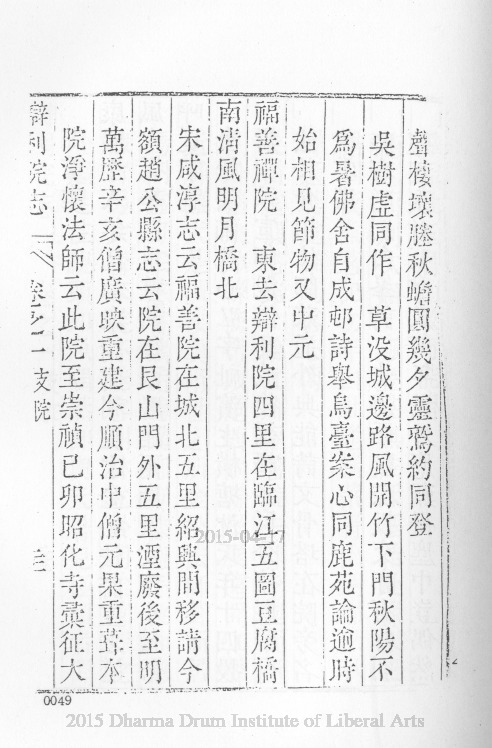 層樓壞塍秋蟾圓幾夕靈鷲約同登
吳樹虛同作　草没城邊路風開竹下門秋陽不
爲暑佛舍自成邨詩舉烏臺案心同鹿苑論逾時
始相見節物又中元
福善禪院　東去辯利院四里在臨江五圖豆腐橋
南清風明月橋北
宋咸淳志云福善院在城北五里紹興間移請今
額趙公縣志云院在艮山門外五里湮廢後至明
萬歷辛亥僧廣映重建今順治中僧元杲重葺本
院淨懷法師云此院至崇禎已卯昭化寺彙征大
辯利院志　卷之一支院
2015-04-17
0049
2015 Dharma Drum Institute of Liberal Arts